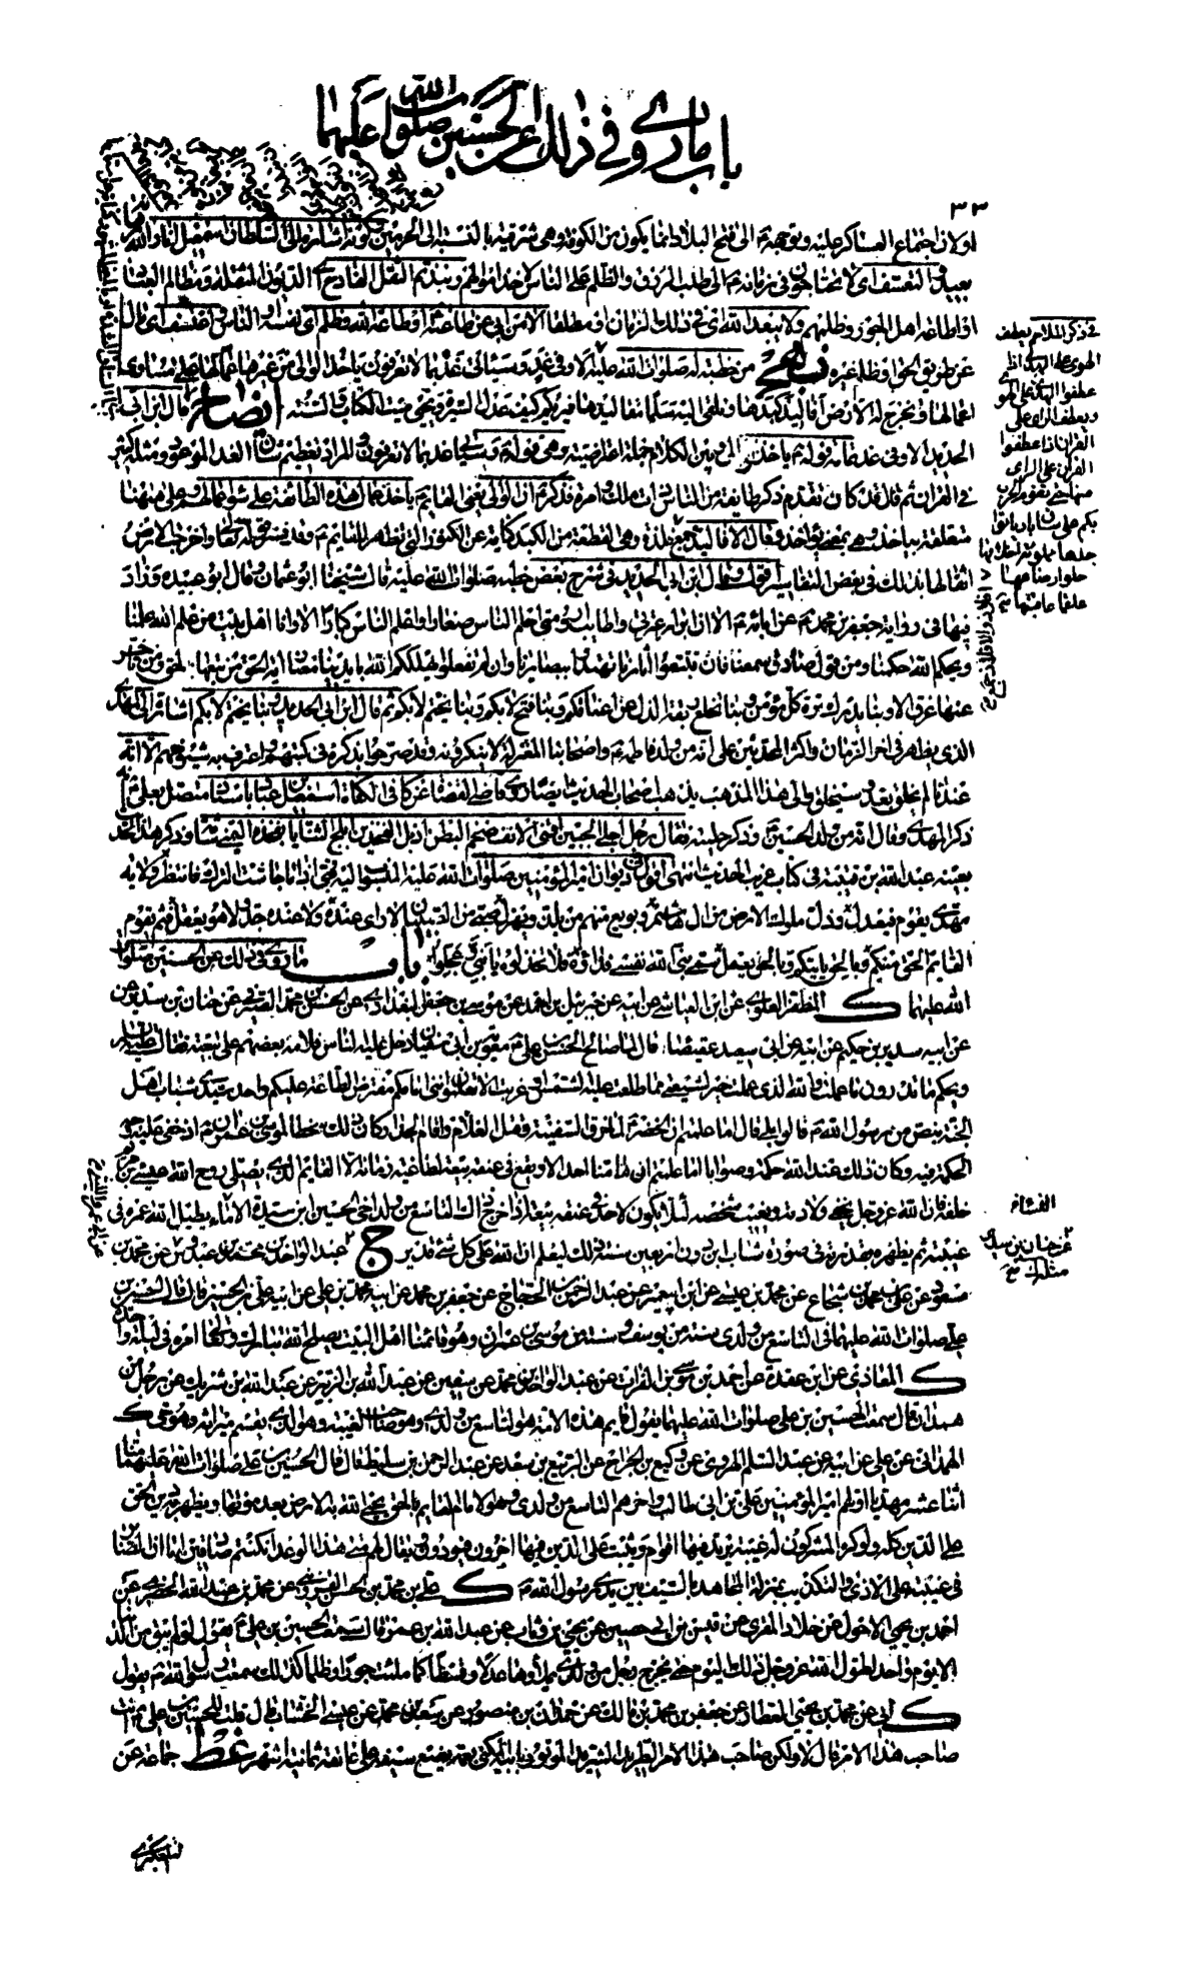 باب ما روي في ذلك عن الحسنين صلوات الله عليهما
٣٣
اولان اجتماع العساكر عليه وتوجهه الى فتح البلاد انما يكون من الكوفة وهي شرقية بالنسبة الى الحرمين
بعيد والتعسف اى لا تحتاجون في زمانه الى طلب الرزق والظلم على الناس لاخذ اموالهم ونبذتم الثقل الفادح اى الديون المثقلة ومظالم العباد
او اطاعة اهل الجور وظلمهم ولا يبعد الله اى في ذلك الزمان او مطلقا الا من ابى عن طاعته او طاعة الله وظلم اى نفسه او الناس واعتسف اى مال
عن طريق الحق او ظلم غيره نهج من خطبة له صلوات الله عليه الا وفي غد وسيأتى غد بما لا تعرفون ياخذ الوالى من غيرها عمالها على مساوى
اعمالها وتخرج له الارض افاليذ كبدها وتلقى اليه سلما مقاليدها فيريكم كيف عدل السيرة ويحيى ميت الكتاب والسنة ايضاح قال ابن ابى
الحديد الا وفي غد تمامه قوله ياخذ الوالى وبين الكلام جملة اعتراضية وهى قوله وسيأتى غد بما لا تعرفون والمراد تعظيم شأن الغد الموعود ومثله كثير
في القرآن ثم قال قد كان تقدم ذكر طائفة من الناس ذات ملك وامرة فذكر ان الوالى يعنى القائم ياخذ عمال هذه الطائفة على سوء اعمالهم وعلى هيهنا
متعلقة بياخذ وهى بمعنى يؤاخذ وقال الافاليذ جمع افلاذ وهى القطعة من الكبد كناية عن الكنوز التى تظهر للقائم وقد فسر قوله تعالى واخرجت الارض
اثقالها بذلك في بعض التفاسير اقول وقال ابن ابى الحديد في شرح بعض خطبه صلوات الله عليه قال شيخنا ابو عثمان وقال ابو عبيدة وزاد
فيها في رواية جعفر بن محمد عن آبائه الا ان ابرار عترتى واطايب ارومتى احلم الناس صغارا واعلم الناس كبارا الا وانا اهل بيت من علم الله علمنا
وبحكم الله حكمنا ومن قول صادق سمعنا فان تتبعوا آثارنا تهتدوا ببصائرنا وان لم تفعلوا يهلككم الله بايدينا معنا راية الحق من تبعها لحق ومن تاخر
عنها غرق الا وبنا يدرك ترة كل مؤمن وبنا تخلع ربقة الذل عن اعناقكم وبنا فتح لا بكم وبنا يختم لا بكم ثم قال ابن ابى الحديد وبنا يختم لا بكم اشارة الى المهدى
الذى يظهر في آخر الزمان واكثر المحدثين على انه من ولد فاطمة واصحابنا المعتزلة لا ينكرونه وقد صرحوا بذكره في كتبهم واعترف به شيوخهم الا انه
عندنا لم يخلق بعد وسيخلق والى هذا المذهب يذهب اصحاب الحديث ايضا روى قاضى القضاة عن كافى الكفاة اسمعيل بن عباد باسناد متصل بعلى انه
ذكر المهدى وقال انه من ولد الحسين وذكر حليته فقال رجل اجلى الجبين اقنى الانف ضخم البطن ازيل الفخذين ابلج الثنايا بفخذه اليمنى شامة وذكر هذا الحديث
بعينه عبد الله بن قتيبة في كتاب غريب الحديث انتهى اقول في ديوان امير المؤمنين صلوات الله عليه المنسوب اليه بنى اذا ما جاشت الترك فانتظر ولاية
مهدى يقوم فيعدل وذل ملوك الارض من آل هاشم وبويع منهم من يلذ ويهزل صبى من الصبيان لا راى عنده ولا عنده جد ولا هو يعقل فثم يقوم
القائم الحق منكم وبالحق ياتيكم وبالحق يعمل سمى نبى الله نفسى فداؤه فلا تخذلوه يا بنى وعجلوا باب ما روى في ذلك عن الحسنين صلوات
الله عليهما ك المظفر العلوى عن ابن العياشى عن ابيه عن جبرئيل بن احمد عن موسى بن جعفر البغدادى عن الحسن بن محمد الصيرفى عن حنان بن سدير عن
عن ابيه سدير بن حكيم عن ابيه عن ابى سعيد عقيصا قال لما صالح الحسن بن على معوية بن ابى سفيان دخل عليه الناس فلامه بعضهم على بيعته فقال
ويحكم ما تدرون ما عملت والله الذى عملت خير لشيعتى مما طلعت عليه الشمس او غربت الا تعلمون اننى امامكم مفترض الطاعة عليكم واحد سيدى شباب اهل
الجنة بنص من رسول الله قالوا بلى قال اما علمتم ان الخضر لما خرق السفينة وقتل الغلام واقام الجدار كان ذلك سخطا لموسى بن عمران اذ خفى عليه وجه
الحكمة فيه وكان ذلك عند الله حكمة وصوابا اما علمتم انه ما منا احد الا ويقع في عنقه بيعة لطاغية زمانه الا القائم الذى يصلى روح الله عيسى بن مريم
خلفه فان الله عز وجل يخفى ولادته ويغيب شخصه لئلا يكون لاحد في عنقه بيعة اذا خرج ذاك التاسع من ولد اخى الحسين ابن سيدة الاماء يطيل الله عمره في
غيبته ثم يظهره بقدرته في صورة شاب ابن دون اربعين سنة ذلك ليعلم ان الله على كل شئ قدير ج عبد الواحد بن محمد بن عبدوس عن محمد بن
مسعود عن على بن محمد بن شجاع عن محمد بن عيسى عن ابن ابى عمير عن عبد الرحمن بن الحجاج عن جعفر بن محمد عن ابيه محمد بن على عن ابيه على بن الحسين قال قال الحسين بن
على صلوات الله عليهما في التاسع من ولدى سنة من يوسف وسنة من موسى بن عمران وهو قائمنا اهل البيت يصلح الله تبارك وتعالى امره في ليلة واحدة
ك المعاذى عن ابن عقدة عن احمد بن موسى بن الفرات عن عبد الواحد بن محمد عن سفيان عن عبد الله بن الزبير عن عبد الله بن شريك عن رجل من
همدان قال سمعت الحسين بن على صلوات الله عليهما يقول قائم هذه الامة هو التاسع من ولدى وهو صاحب الغيبة وهو الذى يقسم ميراثه وهو حى ك
الهمدانى عن على عن ابيه عن عبد السلام الهروى عن وكيع بن الجراح عن الربيع بن سعد عن عبد الرحمن بن سليط قال قال الحسين بن على صلوات الله عليهما منا
اثنا عشر مهديا اولهم امير المؤمنين على بن ابى طالب وآخرهم التاسع من ولدى وهو الامام القائم بالحق يحيى الله به الارض بعد موتها ويظهر به دين الحق
على الدين كله ولو كره المشركون له غيبة يرتد فيها اقوام ويثبت على الدين فيها آخرون فيؤذون ويقال لهم متى هذا الوعد ان كنتم صادقين اما ان الصابر
في غيبته على الاذى والتكذيب بمنزلة المجاهد بالسيف بين يدى رسول الله ك على بن محمد بن الحسن القزوينى عن محمد بن عبد الله الحضرمى عن
احمد بن يحيى الاحول عن خلاد المقرى عن قيس بن ابى حصين عن يحيى بن وثاب عن عبد الله بن عمر قال سمعت الحسين بن على يقول لو لم يبق من الدنيا
الا يوم واحد لطول الله عز وجل ذلك اليوم حتى يخرج رجل من ولدى يملأها عدلا وقسطا كما ملئت جورا وظلما كذلك سمعت رسول الله يقول
ك ابى عن محمد بن يحيى العطار عن جعفر بن محمد بن مالك عن حمدان بن منصور عن سعد بن محمد عن عيسى الخشاب قال قلت للحسين بن على انت
صاحب هذا الامر قال لا ولكن صاحب هذا الامر الطريد الشريد الموتور بابيه المكنى بعمه يضع سيفه على عاتقه ثمانية اشهر غط جماعة عن
في ذكر الملاحم يعطف
الهوى على الهدى اذا
عطفوا الهدى على الهوى
ويعطف الراى على
القرآن اذا عطفوا
القرآن على الراى
منها حتى تقوم الحرب
بكم على ساق باديا نواجذها
مملوءة اخلافها
حلوا رضاعها
علقما عاقبتها
الخشاب
عن حنان بن سدير
مثله
التلعكبرى